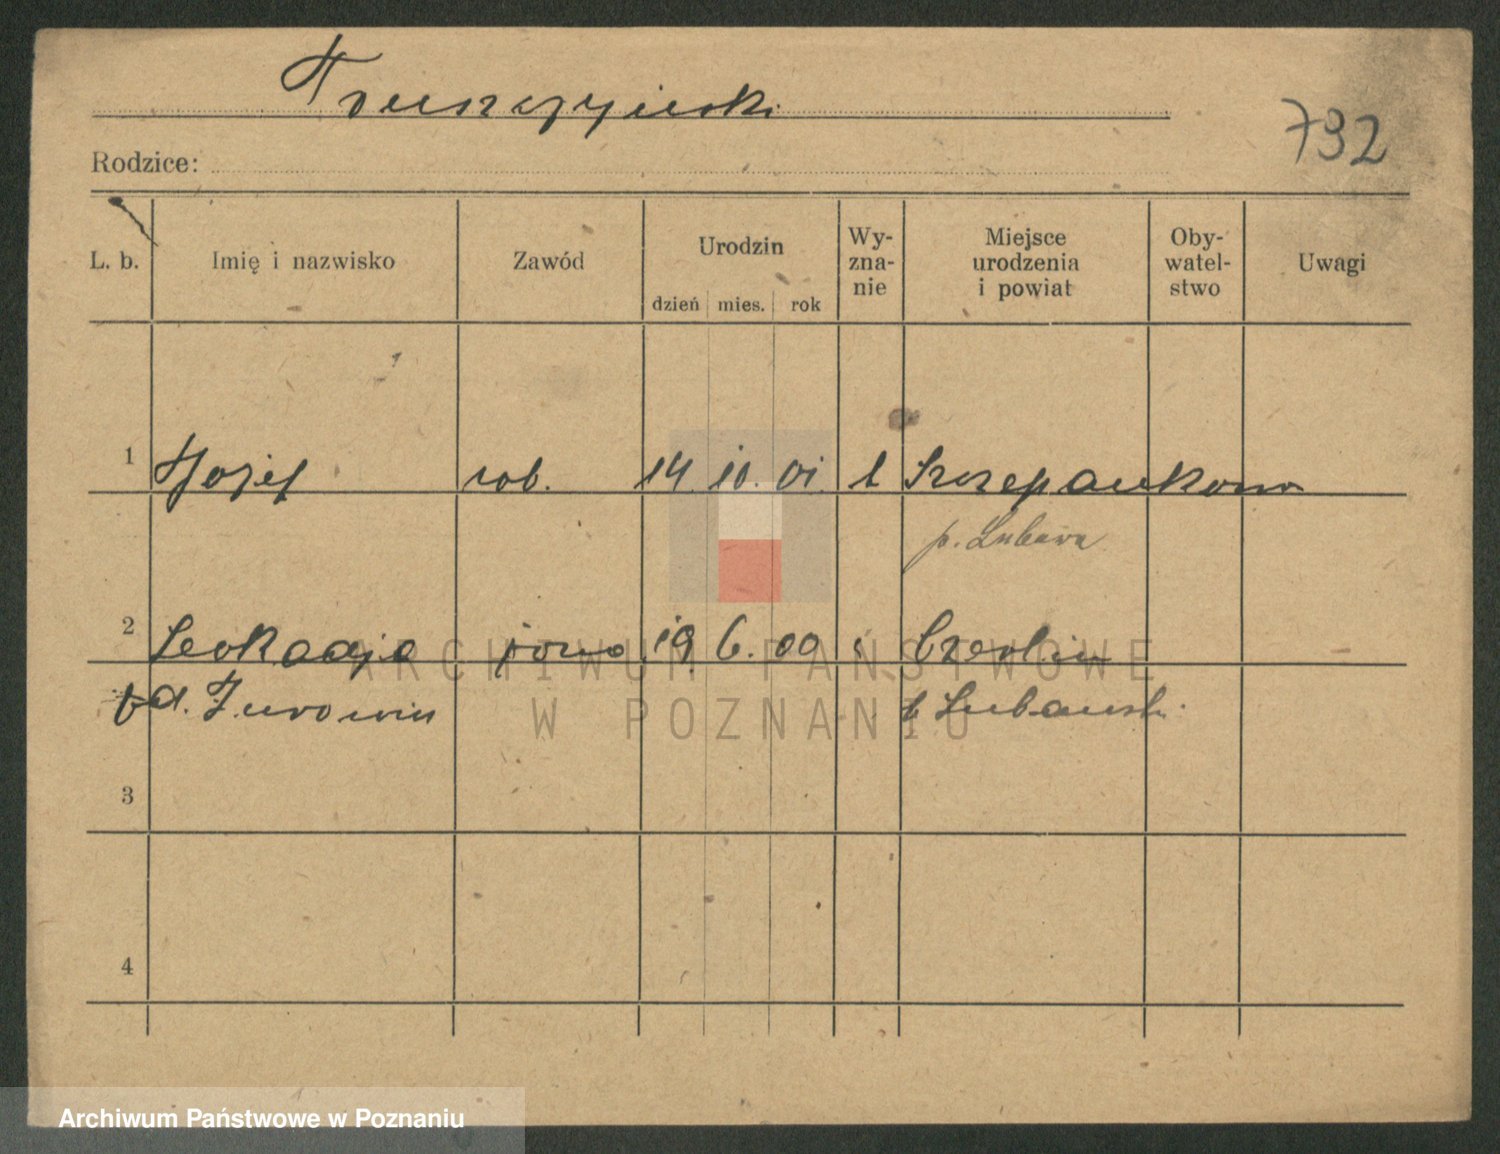 Truszczyński
732
Rodzice:
L. b. Imię i nazwisko Zawód Urodzin dzień mies. rok Wy-zna-nie Miejsce urodzenia i powiat Oby-watel-stwo Uwagi
1 Józef rob. 14. 10. 01. k Szczepankowo
p. Lubawa
2 Leokadja żona 19 6. 09
p. Lubawski
3
4
ARCHIWUM PAŃSTWOWE
W POZNANIU
Archiwum Państwowe w Poznaniu